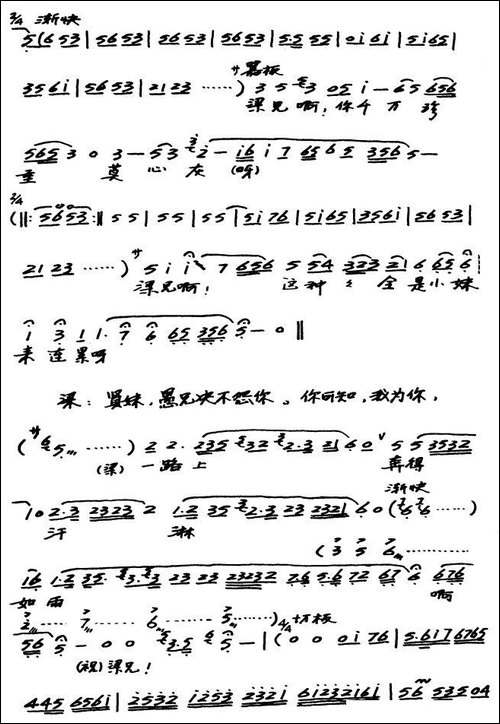 2/4 渐快
5(6 53 | 56 53 | 56 53 | 56 53 | 5·5 55 | 0i 6i | 5i 65 |
サ嚣板
35 6i | 56 53 | 21 23 ……) 3 5 3 05 i — 6 5 656
梁兄啊!你千万珍
565 3 0 3 — 53 2 — i6 i 7 65 6 5 356 5 —
重 莫心灰 (呀)
2/4
(‖: 56 53 :‖ 5 5 | 5 5 | 5 5 | 5i 76 | 5i 65 | 35 6i | 56 53 |
21 23 ……) サ 5 i i 7 656 5 54 323 21 6 65 6
梁兄啊! 这种々全是小妹
1 3 1 1· 7 6 65 356 5 — 0 ‖
来连累呀
梁:贤妹,愚兄决不怨你。你可知,我为你,
(サ 6 5 ……) 2 2· 235 32 2·3 21 6 0 5 5 3532
(梁) 一路上 奔得
渐快
1 0 2·3 2323 2 1·2 35 2·3 23 2321 6 0 (7 7 ……)
汗 淋
(3 5 6 …………
i6 1·2 35· 3·3 23 23 23232 76 5·6 72 67 6 676
如雨 啊
2 …… 7 …… 6 …… 5 ……) 4/4 切板
56 5 — 0 0 3·5 5 — | (0 0 0i 76 | 5·617 6765
(祝)梁兄!
445 656i | 2532 i253 232i 6i232i6i | 56 53504